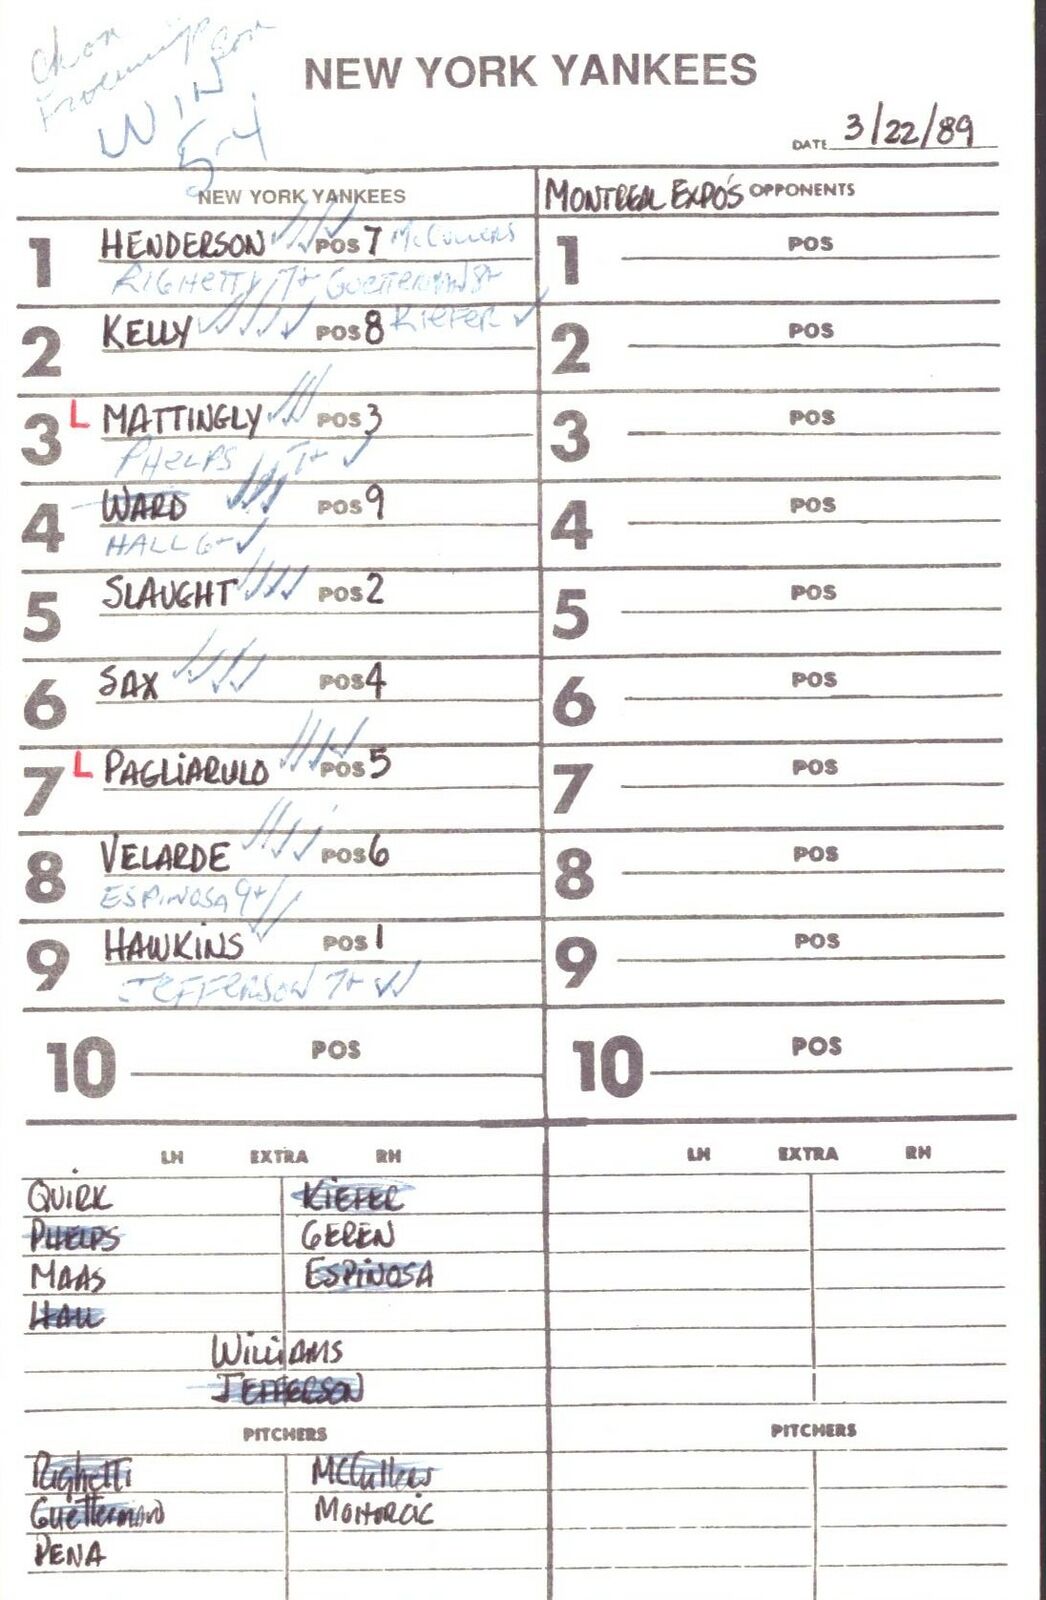 NEW YORK YANKEES
WIN
5-4
DATE 3/22/89
NEW YORK YANKEES
MONTREAL EXPO'S OPPONENTS
1 HENDERSON POS 7 McCULLERS
RIGHETTI 7+ GUETTERMAN 8+
2 KELLY POS 8 KIEFER
3 L MATTINGLY POS 3
PHELPS 7+
4 WARD POS 9
HALL 6+
5 SLAUGHT POS 2
6 SAX POS 4
7 L PAGLIARULO POS 5
8 VELARDE POS 6
ESPINOSA 9+
9 HAWKINS POS 1
JEFFERSON 7+
10 POS
1 POS
2 POS
3 POS
4 POS
5 POS
6 POS
7 POS
8 POS
9 POS
10 POS
LH EXTRA RH
QUIRK KIEFER
PHELPS GEREN
MAAS ESPINOSA
HALL
WILLIAMS
JEFFERSON
PITCHERS
Righetti McCullers
Guetterman MOHORCIC
PENA
LH EXTRA RH
PITCHERS